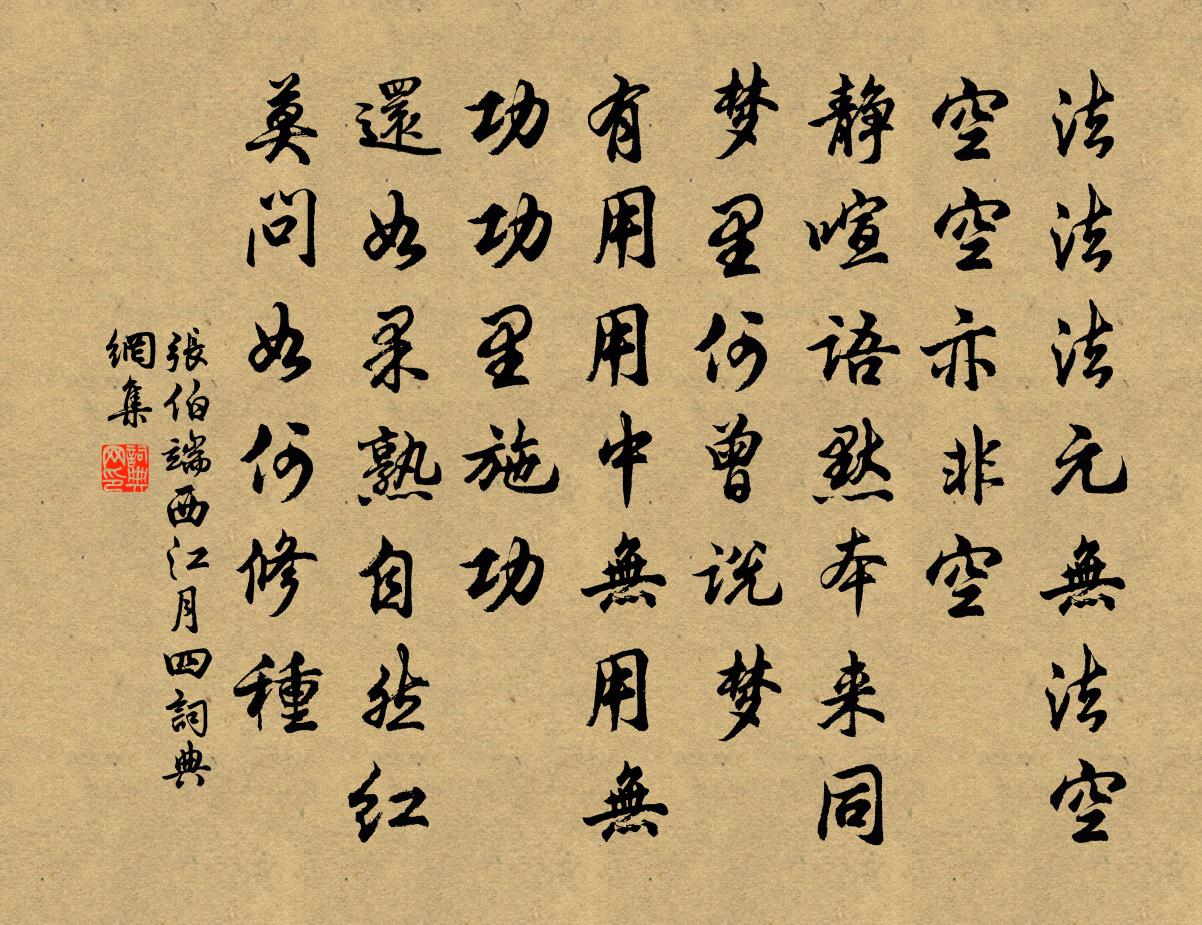 法法法元無法空
空空亦非空
静喧語黙本来同
梦里何曾説梦
有用用中無用無
功功里施功
還如果熟自然红
莫问如何修種
張伯端西江月四詞典
網集
詞典
网印